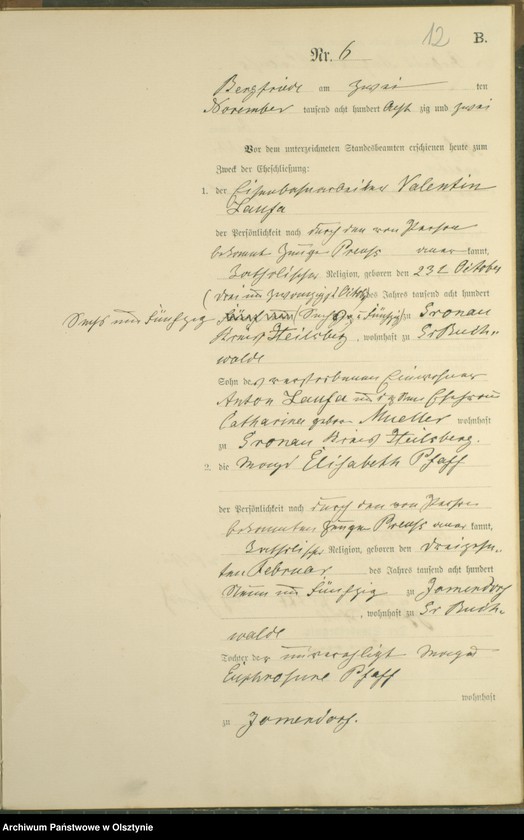 12 B.
Nr. 6
Bergfriede am zwei ten
November tausend acht hundert Acht zig und zwei
Vor dem unterzeichneten Standesbeamten erschienen heute zum
Zweck der Eheschließung:
1. der Eisenbahnarbeiter Valentin
der Persönlichkeit nach durch den von Person
bekannt Zeuge Preuß kannt,
katholischer Religion, geboren den 23t October
(drei und zwanzigst Octob) des Jahres tausend acht hundert
Sechs und Fünfzig
(Sechs und Fünfzig) zu Gronau
Kreis Heilsberg, wohnhaft zu Gr Buch-
walde
Sohn des verstorbenen Einwohner
Anton und der Ehefrau
Catharina geborn Mueller wohnhaft
zu Gronau Kreis Heilsberg.
2. die Magd Elisabeth Pfaff
der Persönlichkeit nach durch den von Person
bekannten Zeuge Preuß kannt,
katholischer Religion, geboren den dreizehn-
ten Februar des Jahres tausend acht hundert
Neun und Fünfzig zu Jomendorf
, wohnhaft zu Gr Buch-
walde
Tochter der unverehligt Magd
Euphrosine Pfaff
wohnhaft
zu Jomendorf.
Archiwum Państwowe w Olsztynie